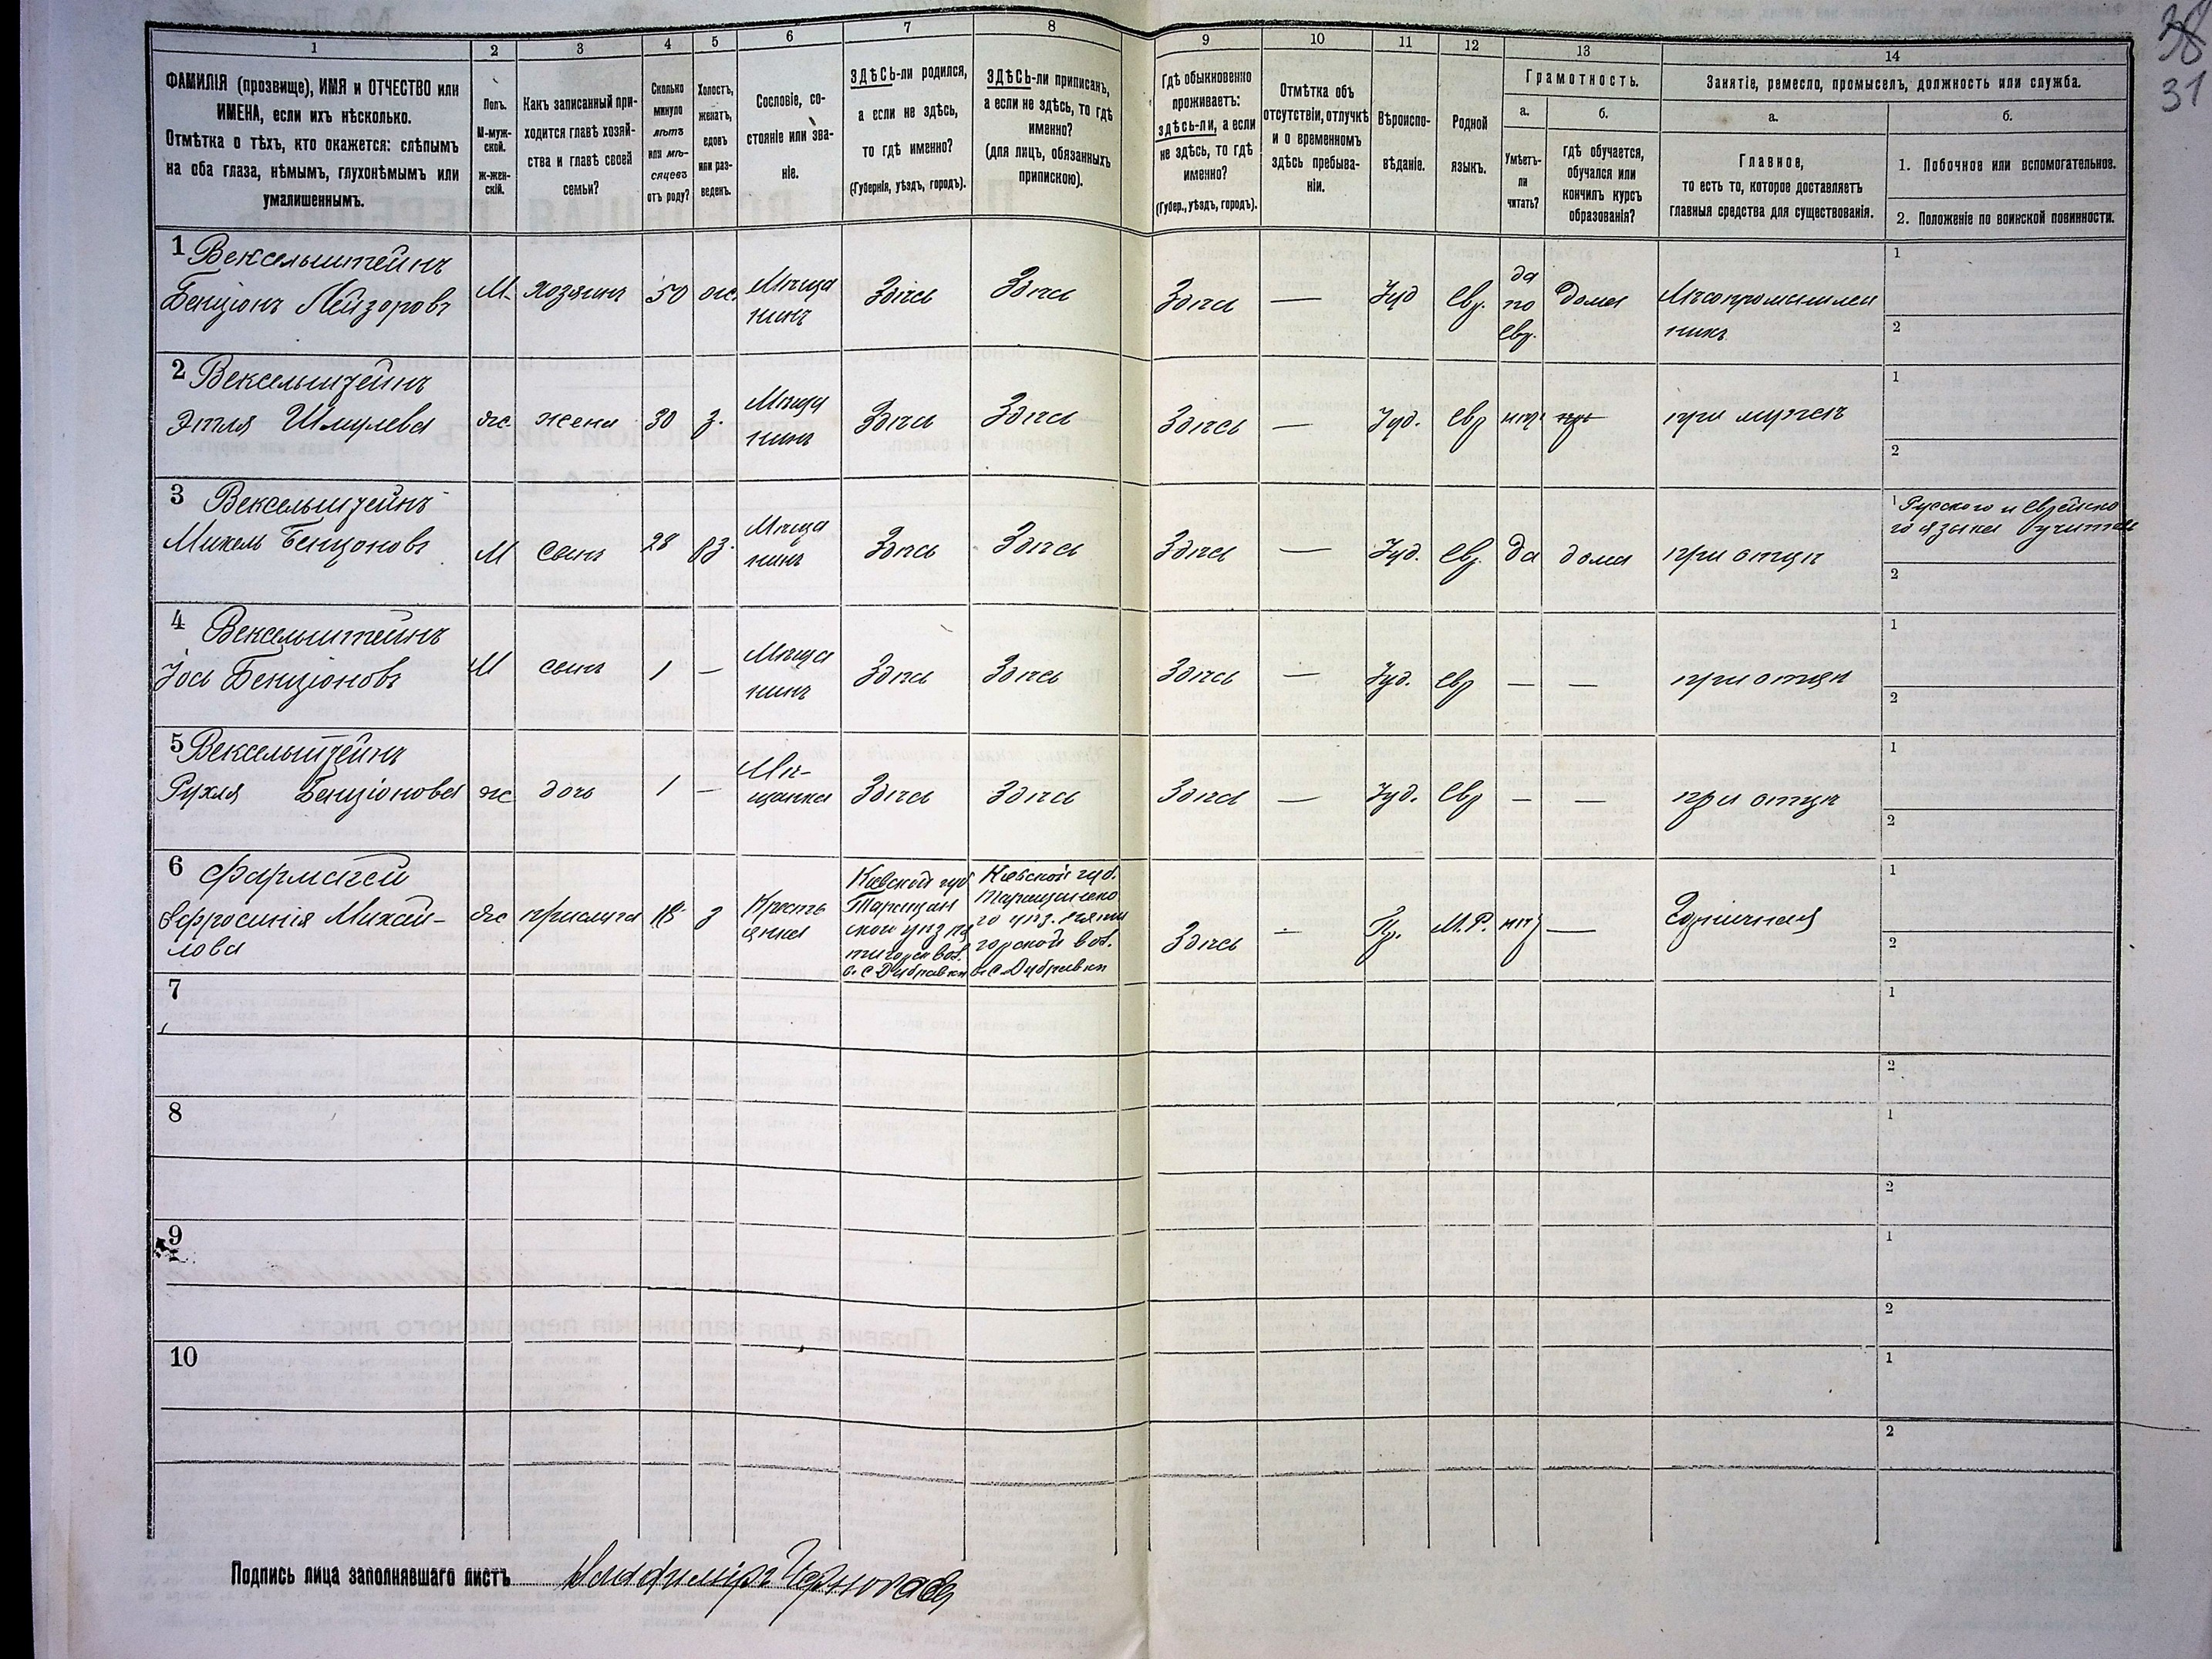 38
31
1 2 3 4 5 6 7 8 9 10 11 12 13 14
ФАМИЛІЯ (прозвище), ИМЯ и ОТЧЕСТВО или
ИМЕНА, если ихъ нѣсколько.
Отмѣтка о тѣхъ, кто окажется: слѣпымъ
на оба глаза, нѣмымъ, глухонѣмымъ или
умалишеннымъ.
Полъ.
М-муж-
ской.
Ж-жен-
скій.
Какъ записанный при-
ходится главѣ хозяй-
ства и главѣ своей
семьи?
Сколько
минуло
лѣтъ
или мѣ-
сяцевъ
отъ роду?
Холостъ,
женатъ,
вдовъ
или раз-
веденъ.
Сословіе, со-
стояніе или зва-
ніе.
ЗДѢСЬ-ли родился,
а если не здѣсь,
то гдѣ именно?
(Губернія, уѣздъ, городъ).
ЗДѢСЬ-ли приписанъ,
а если не здѣсь, то гдѣ
именно?
(для лицъ, обязанныхъ
припиской).
Гдѣ обыкновенно
проживаетъ:
здѣсь-ли, а если
не здѣсь, то гдѣ
именно?
(Губер., уѣздъ, городъ).
Отмѣтка объ
отсутствіи, отлучкѣ
и о временномъ
здѣсь пребыва-
ніи.
Вѣроиспо-
вѣданіе.
Родной
языкъ.
Грамотность.
а.
Умѣетъ-
ли
читать?
б.
гдѣ обучается,
обучался или
кончилъ курсъ
образованія?
Занятіе, ремесло, промыселъ, должность или служба.
а.
Главное,
то есть то, которое доставляетъ
главныя средства для существованія.
б.
1. Побочное или вспомогательное.
2. Положеніе по воинской повинности.
1 Вексельштейнъ
Бенціонъ Лейзоровъ
М. хозяинъ 50 ж. Мѣща
нинъ
Здѣсь Здѣсь Здѣсь — Іуд Евр. да
по
евр.
дома
Мясопромышлен
никъ
1
2
2 Вексельштейнъ
Этля Шмулева
ж жена 30 з. Мѣща
нинъ
Здѣсь Здѣсь Здѣсь — Іуд. Евр нѣт
при мужѣ
1
2
3 Вексельштейнъ
Михель Бенционовъ
М Сынъ 28 Мѣща
нинъ
Здѣсь Здѣсь Здѣсь — Іуд. Евр. да дома при отцѣ
1 Русского и Еврейско
го языка учитель
2
4 Вексельштейнъ
Іось Бенціоновъ
М сынъ 1 — Мѣща
нинъ
Здѣсь Здѣсь Здѣсь — Іуд. Евр — — при отцѣ
1
2
5 Вексельштейнъ
Рухля Бенціонова
ж дочь 1 — Мѣ-
щанка
Здѣсь Здѣсь Здѣсь — Іуд. Евр — — при отцѣ
1
2
6 Фармагей
Ефросинія Михай-
лова
ж прислуга 18 з Кресть
янка
Кіевской губ
Таращан
ского уѣз. Пя
тигорск вол.
с. Дубравки
Кіевской губ.
Таращанско
го уѣз. Пяти
горской вол.
с. Дубравки
Здѣсь — Пр. М.Р. нѣт —
Горничная
1
2
7
1
2
8
1
2
9
1
2
10
1
2
Подпись лица заполнявшаго листъ Владиміръ